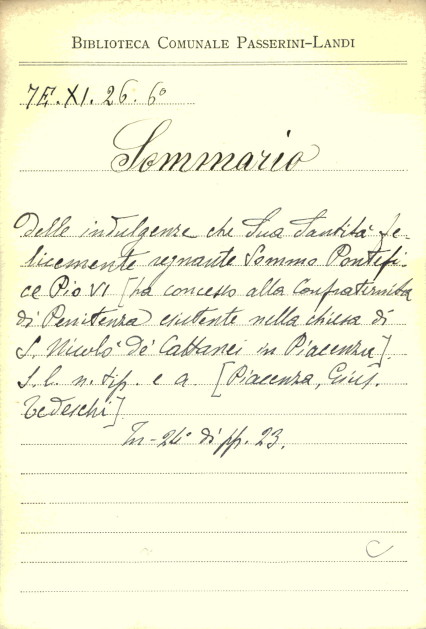 BIBLIOTECA COMUNALE PASSERINI-LANDI
7E.XI.26.6º
Sommario
Delle indulgenze che Sua Santità fe-
licemente regnante Sommo Pontefi-
ce Pio VI [ha concesso alla Confraternita
di Penitenza esistente nella chiesa di
S. Nicolò de' Cattanei in Piacenza].
S. l. n. tip. e a. [Piacenza, Gius.
Tedeschi].
In-24º di pp. 23.
C